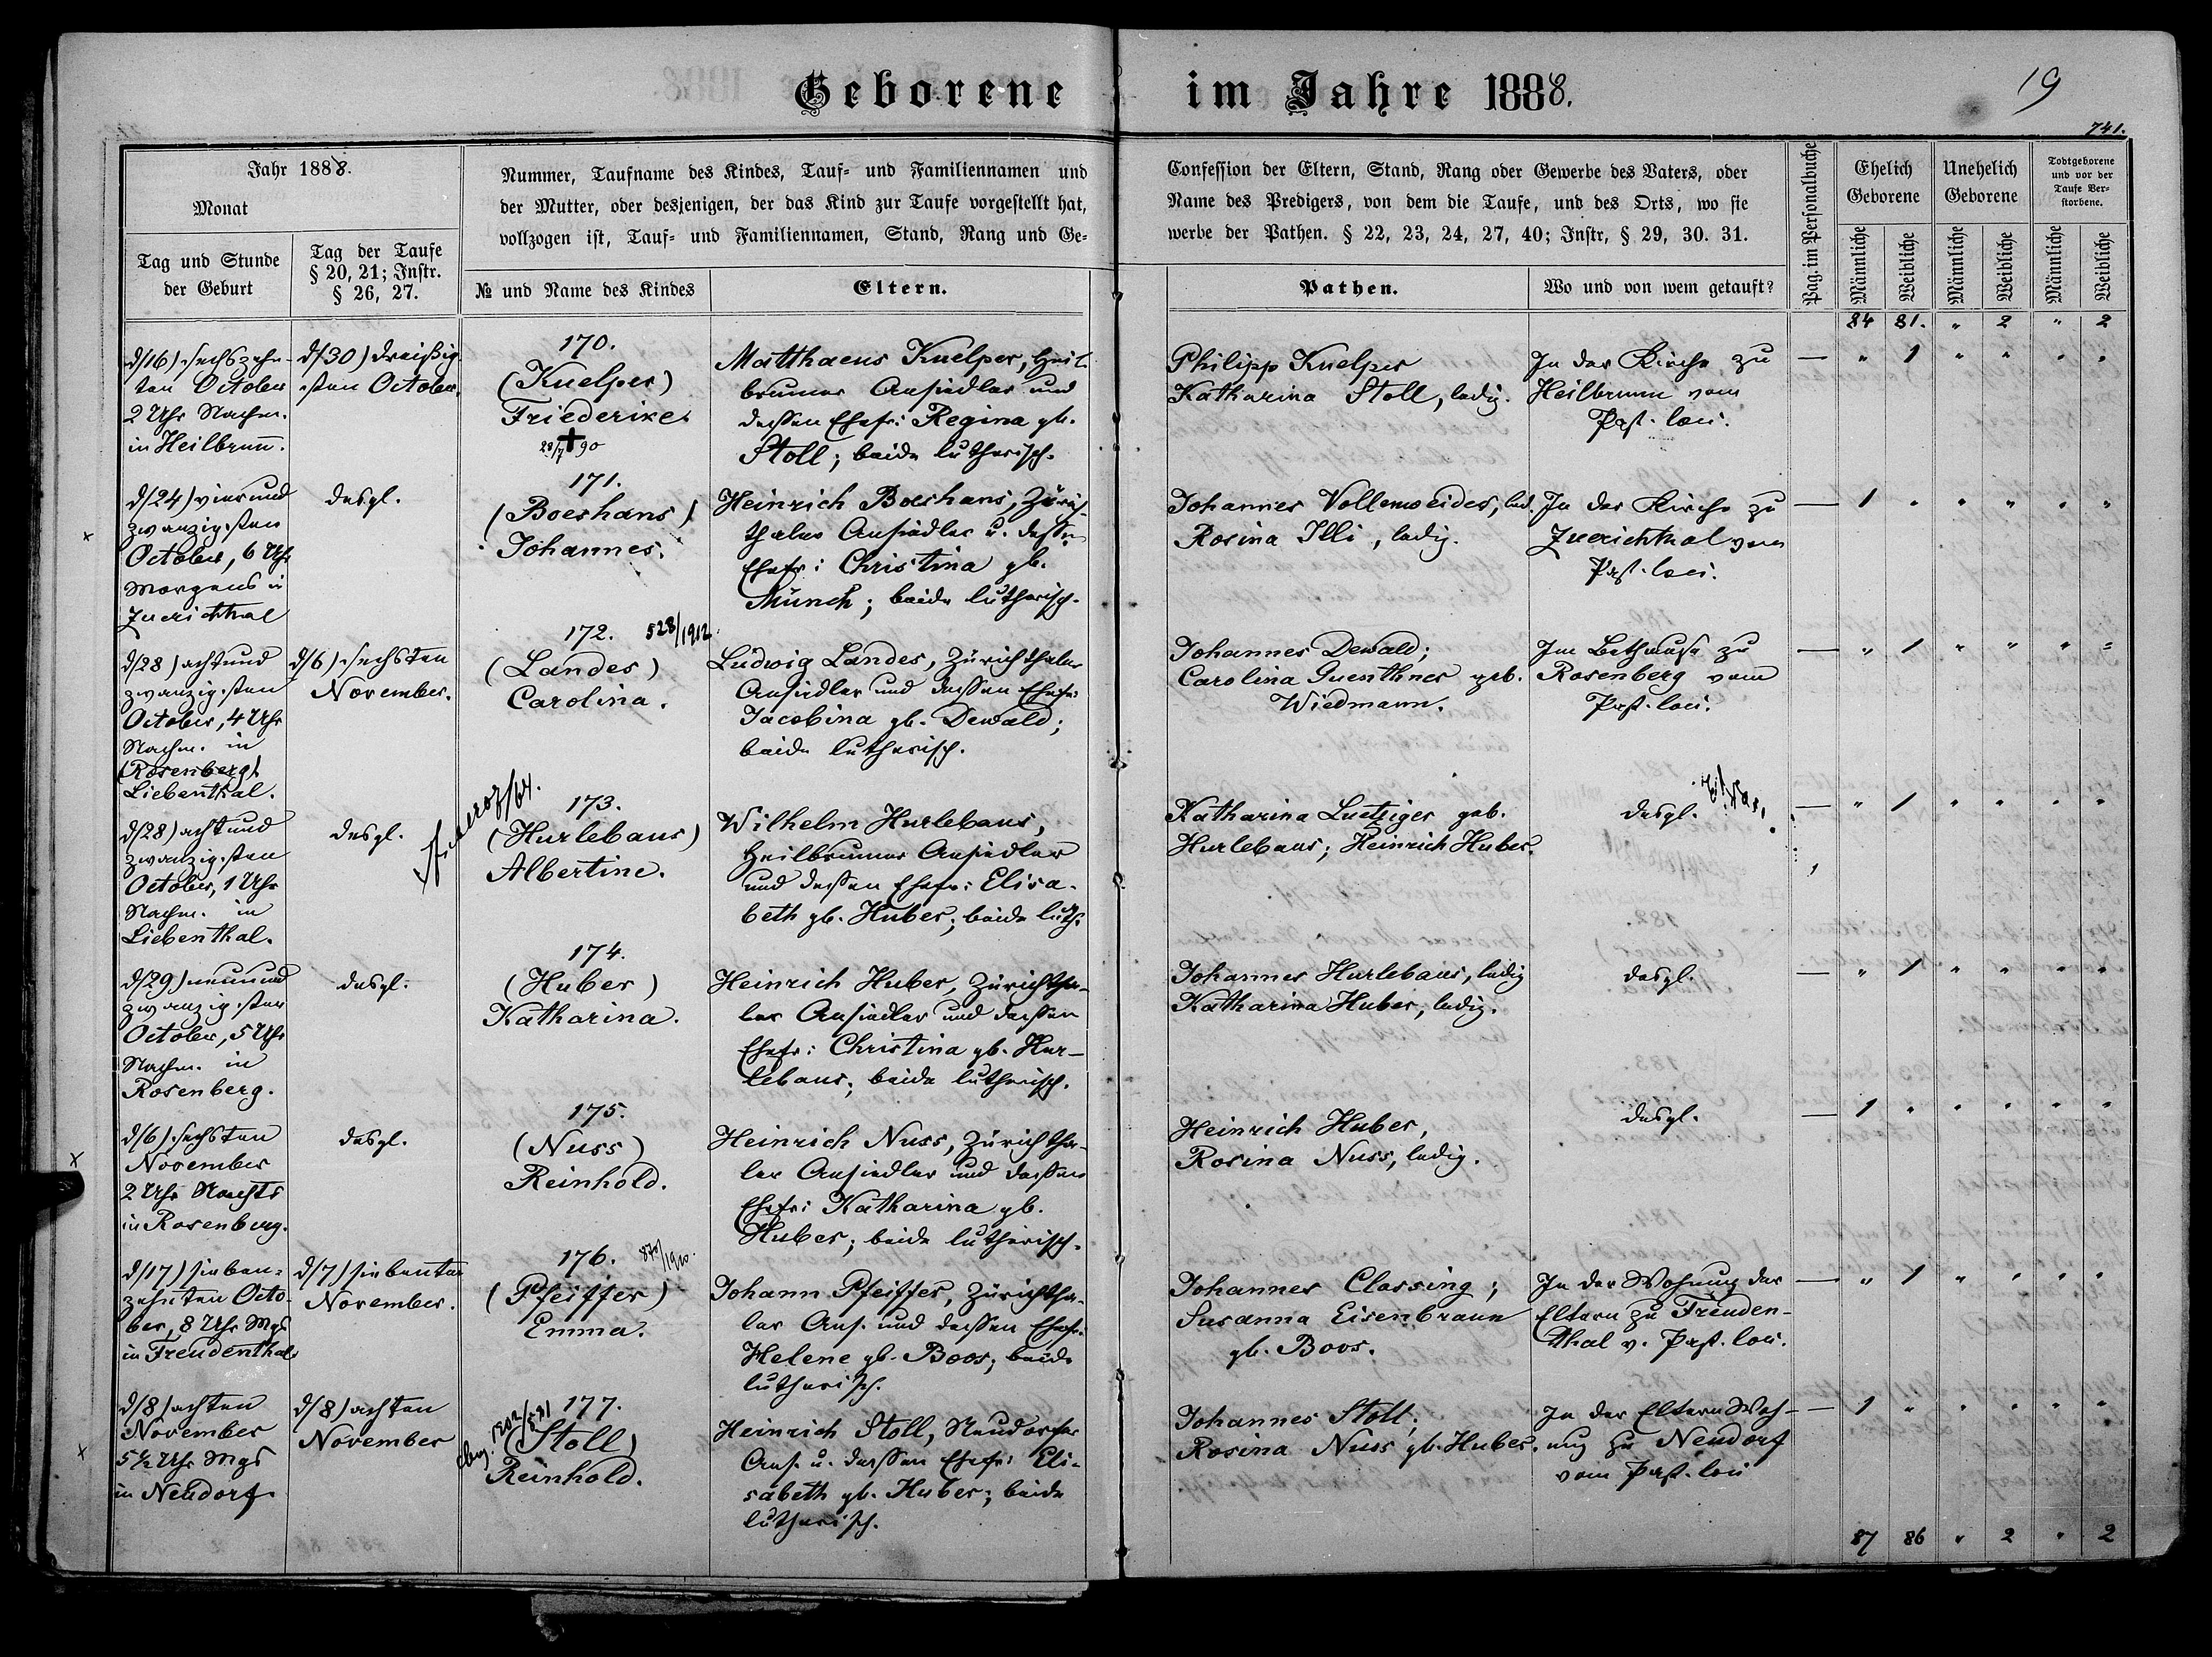 Geborene im Jahre 1888.
19
741.
Jahr 1888.
Monat
Tag und Stunde
der Geburt
Tag der Taufe
§ 20, 21; Instr.
§ 26, 27.
Nummer, Taufname des Kindes, Tauf- und Familiennamen und
der Mutter, oder desjenigen, der das Kind zur Taufe vorgestellt hat,
vollzogen ist, Tauf- und Familiennamen, Stand, Rang und Ge-
№ und Name des Kindes
Eltern.
Confession der Eltern, Stand, Rang oder Gewerbe des Vaters, oder
Name des Predigers, von dem die Taufe, und des Orts, wo sie
werbe der Pathen. § 22, 23, 24, 27, 40; Instr, § 29, 30. 31.
Pathen.
Wo und von wem getauft?
Pag. im Personalbuche
Ehelich
Geborene
Unehelich
Geborene
Todtgeborene
und vor der
Taufe Ver-
storbene.
Männliche
Weibliche
Männliche
Weibliche
Männliche
Weibliche
84 81. " 2 " 2
d/16) sechszehn-
ten October
2 Uhr Nachm.
in Heilbrunn.
d/30) dreißig-
sten October.
170.
(Kuelper)
Friederike.
28/7 ✝ 90
Matthaeus Kuelper, Heil-
brunner Ansiedler und
dessen Ehefr: Regina gb.
Stoll; beide lutherisch.
Philipp Kuelper
Katharina Stoll, ledig.
In der Kirche zu
Heilbrunn vom
Past. loci.
— " 1 " " " "
x
d/24) vierund
zwanzigsten
October, 6 Uhr
Morgens in
Zuerichthal
desgl.
171.
(Boeshans)
Johannes.
Heinrich Boeshans, Zürich-
thaler Ansiedler u. dessen
Ehefr: Christina gb.
Münch; beide lutherisch.
Johannes Vollenweider, led.
Rosina Illi, ledig.
In der Kirche zu
Zuerichthal vom
Past. loci.
— 1 " " " " "
d/28) achtund
zwanzigsten
October, 4 Uhr
Nachm. in
(Rosenberg)
Liebenthal.
d/6) sechsten
November.
172. 528/1912.
(Landes)
Carolina.
Ludwig Landes, Zürichthaler
Ansiedler und dessen Ehefr:
Jacobina gb. Dewald;
beide lutherisch.
Johannes Dewald;
Carolina Guenthner geb.
Wiedmann.
Im Bethause zu
Rosenberg vom
Past. loci.
— " 1 " " " "
d/28) achtund
zwanzigsten
October, 1 Uhr
Nachm. in
Liebenthal.
desgl.
173.
(Hurlebaus)
Albertine.
Wilhelm Hurlebaus,
Heilbrunner Ansiedler
und dessen Ehefr: Elisa-
beth gb. Huber; beide luth.
Katharina Luetziger geb.
Hurlebaus; Heinrich Huber.
desgl.
— " 1 " " " "
d/29) neunund
zwanzigsten
October, 5 Uhr
Nachm. in
Rosenberg.
desgl.
174.
(Huber)
Katharina.
Heinrich Huber, Zürichtha-
ler Ansiedler und dessen
Ehefr: Christina gb. Hur-
lebaus; beide lutherisch.
Johannes Hurlebaus, ledig
Katharina Huber, ledig.
desgl.
— " 1 " " " "
x
d/6) sechsten
November
2 Uhr Nachts
in Rosenberg.
desgl.
175.
(Nuss)
Reinhold.
Heinrich Nuss, Zürichtha-
ler Ansiedler und dessen
Ehefr: Katharina gb.
Huber; beide lutherisch.
Heinrich Huber,
Rosina Nuss, ledig.
desgl.
— 1 " " " " "
d/17) sieben-
zehnten Octo-
ber, 8 Uhr Mgs
in Freudenthal.
d/7) siebenten
November.
176.
(Pfeiffer)
Emma.
Johann Pfeiffer, Zürichtha-
ler Ans. und dessen Ehefr:
Helene gb. Boos; beide
lutherisch.
Johannes Classing;
Susanna Eisenbraun
gb. Boos.
In der Wohnung der
Eltern zu Freuden-
thal v. Past. loci.
— " 1 " " " "
x
d/8) achten
November
5½ Uhr Mgs
in Neudorf
d/8) achten
November
177.
(Stoll)
Reinhold.
Heinrich Stoll, Neudorfer
Ans. u. dessen Ehefr: Eli-
sabeth gb. Huber; beide
lutherisch.
Johannes Stoll;
Rosina Nuss gb. Huber.
In der Eltern Woh-
nung zu Neudorf
vom Past. loci
— 1 " " " " "
87 86 " 2 " 2